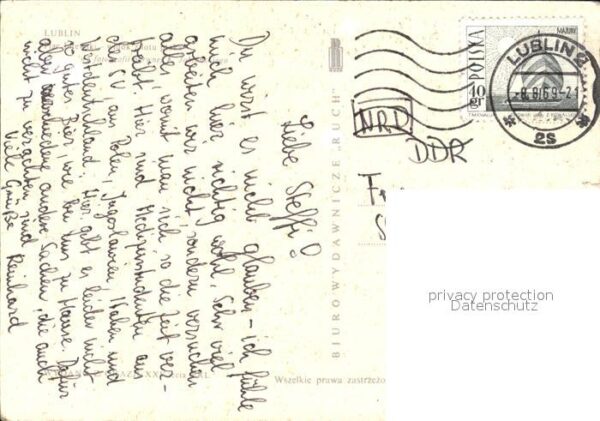 LUBLIN
Liebe Steffi!
Du wirst es nicht glauben – ich fühle
mich hier richtig wohl. Sehr viel
arbeiten wir nicht, sondern versuchen
alles, womit man sich so die Zeit ver-
treibt. Hier sind Medizinstudenten aus
der SU, aus Polen, Jugoslawien, Italien und
Westdeutschland. Hier gibt es leider nicht
so gutes Bier, wie bei uns zu Hause. Dafür
aber verschiedene andere Sachen, die auch
nicht zu verachten sind.
Viele Grüße Reinhard
BIURO WYDAWNICZE „RUCH”
Wszelkie prawa zastrzeżo
POLSKA
40 gr
MAZURY
LUBLIN 2
-8.8.69-21
2s
NRD
DDR
privacy protection
Datenschutz